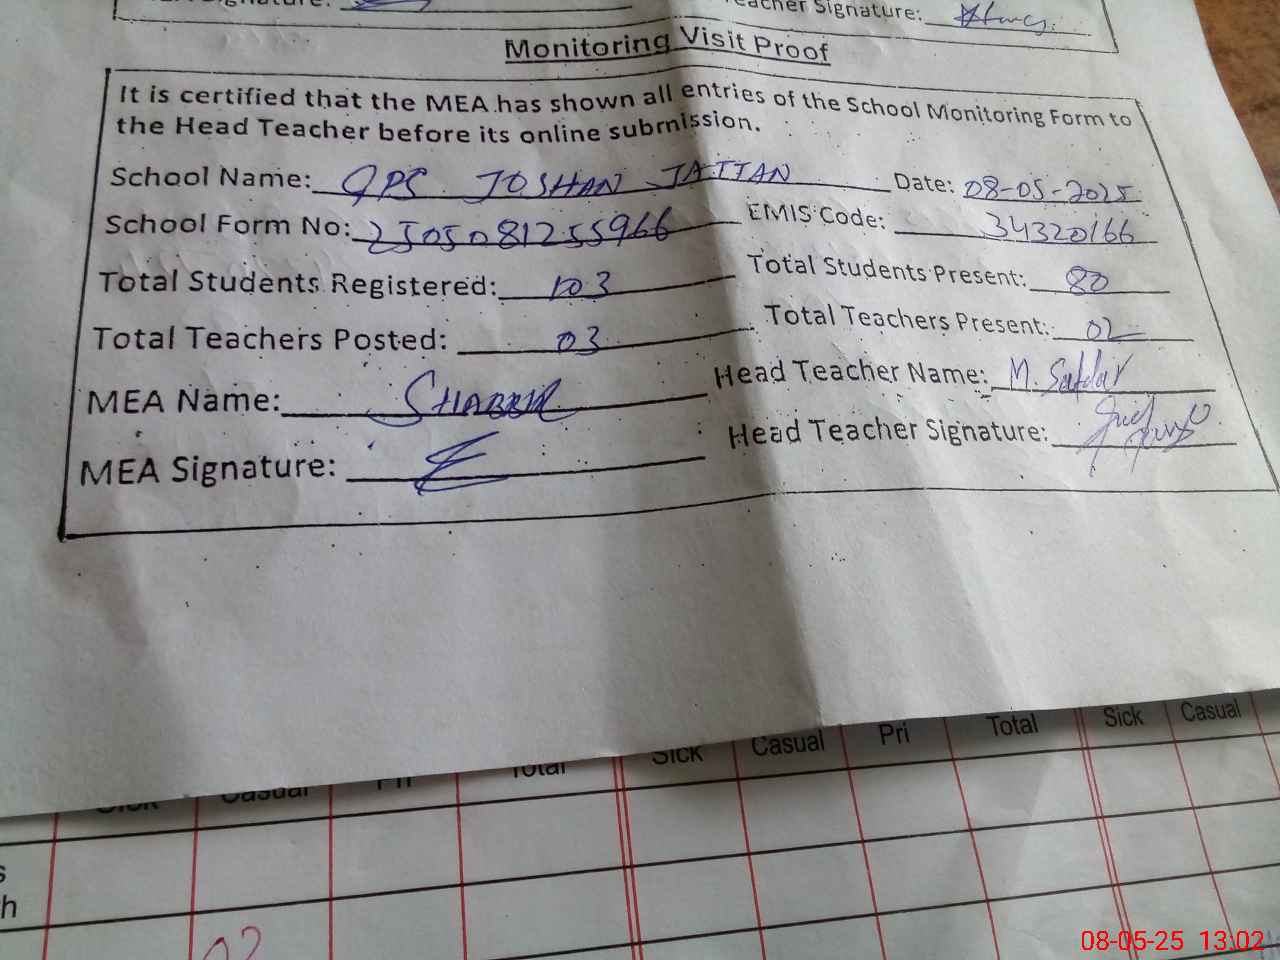 Teacher Signature:
Monitoring Visit Proof
It is certified that the MEA has shown all entries of the School Monitoring Form to
the Head Teacher before its online submission.
School Name: GPS JOSHAN JATTAN Date: 08-05-2025
School Form No: 2505081255966 EMIS Code: 34320166
Total Students Registered: 103 Total Students Present: 80
Total Teachers Posted: 03 Total Teachers Present: 02
MEA Name: SHABBIR Head Teacher Name: M. Safdar
MEA Signature: Head Teacher Signature:
Sick Casual Pri Total Sick Casual Pri Total Sick Casual
08-05-25 13:02